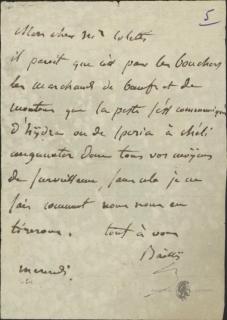 5
Mon cher Mr Coletti
il parait que c'est par les bouchers
les marchands de bœufs et de
moutons que la peste s'est communiquée
d'hydra ou de spezia à
augmentez donc tous vos moyens
de surveillance, sans cela je ne
sais comment nous nous en
tirerons. tout à vous
mercredi.